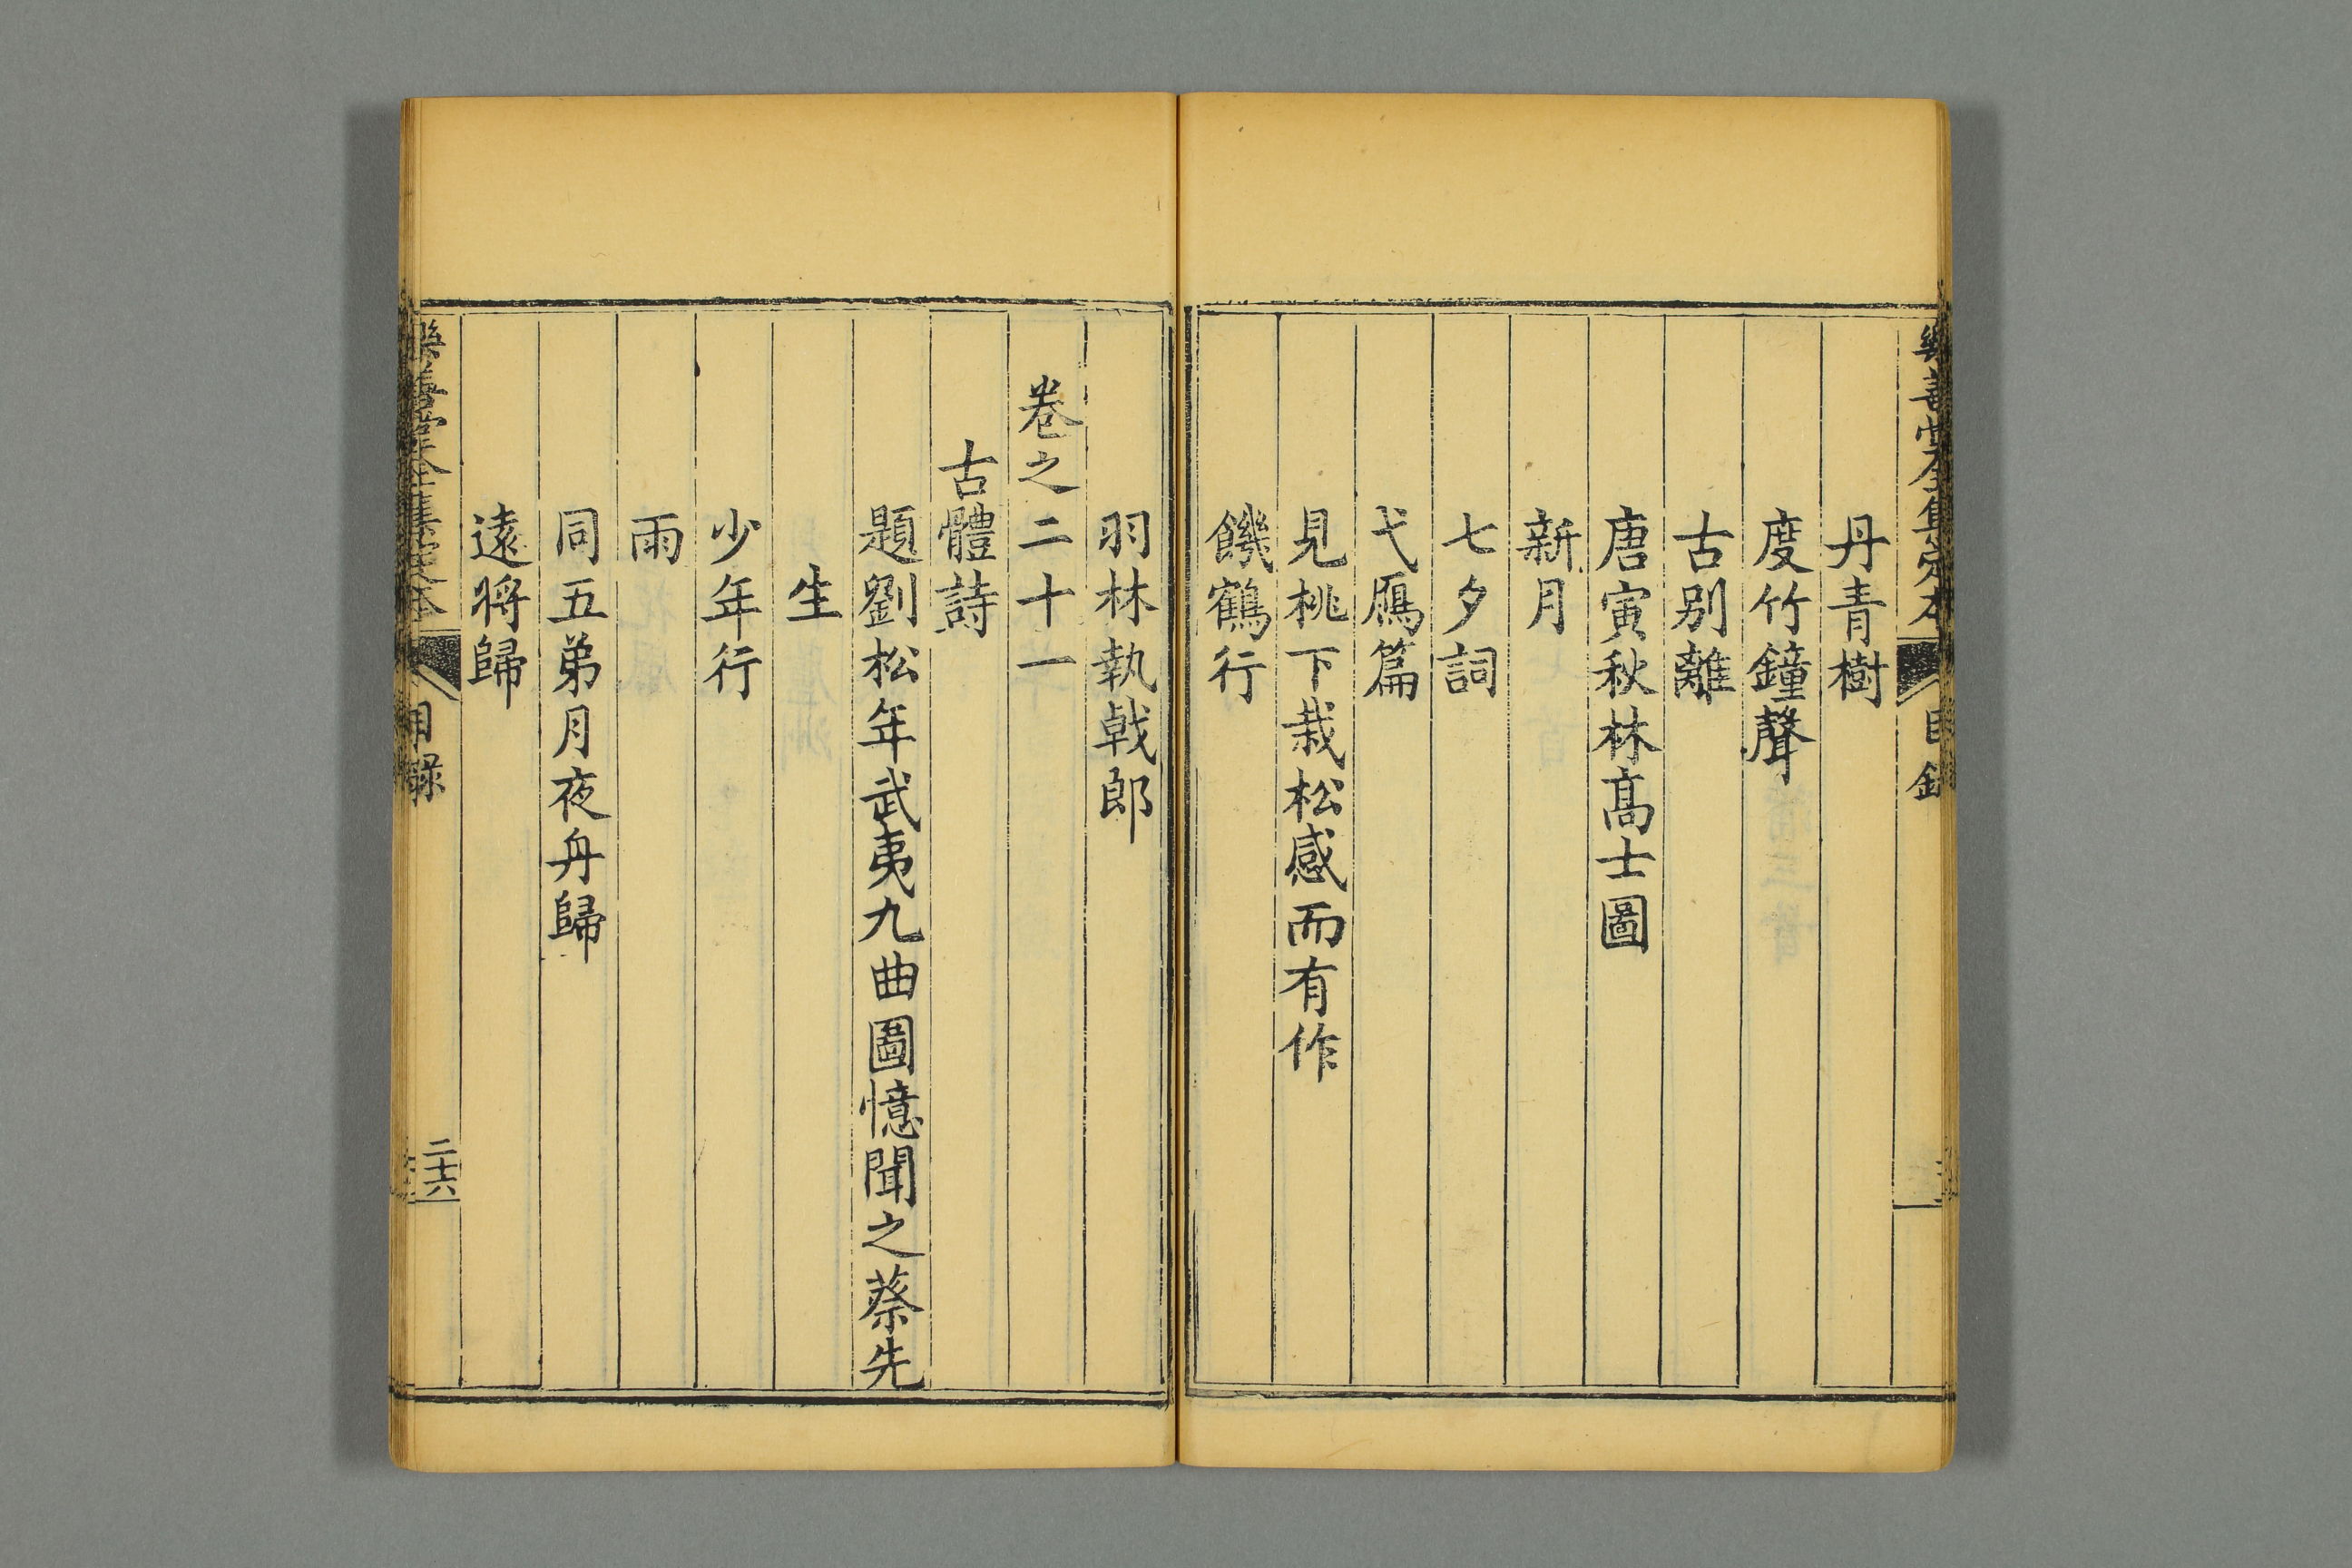 樂善堂全集定本
目錄
丹青樹
度竹鐘聲
古别離
唐寅秋林高士圖
新月
七夕詞
弋鴈篇
見桃下栽松感而有作
饑鶴行
羽林執戟郎
卷之二十一
古體詩
題劉松年武夷九曲圖憶聞之蔡先
生
少年行
雨
同五弟月夜舟歸
遠將歸
樂善堂全集定本
目錄
二十六